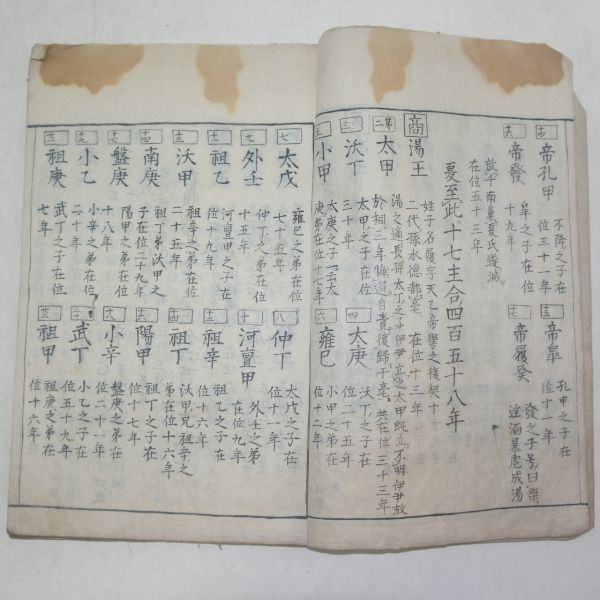 帝孔甲
不降之子在
位三十一年
帝皐
孔甲之子在
位十一年
帝發
皐之子在位
十九年
帝履癸
發之子号曰桀
淫酒暴虐成湯
放于南巢夏氏遂滅
在位五十三年
夏至此十七主合四百五十八年
商
湯王
姓子名履字天乙帝嚳之後契十
二代孫水德都亳 在位十三年
第二
太甲
湯之適長孫太丁之子伊尹立之太甲旣立不明伊尹放
於桐三年悔過自責復歸于亳共在位三十三年
三
沃丁
太甲之子在位
三十年
四
太庚
沃丁之子在
位二十五年
五
小甲
太庚之子云太
庚弟在位十七年
六
雍巳
小甲之弟在
位十二年
七
太戊
雍巳之弟在位
七十五年
八
仲丁
太戊之子在
位十一年
九
外壬
仲丁之弟在位
十五年
十
河亶甲
外壬之弟
在位九年
祖乙
河亶甲之子在
位十九年
祖辛
祖乙之子在
位十六年
沃甲
祖辛之弟在位
二十五年
祖丁
沃甲兄祖辛之
弟在位十六年
南庚
祖丁弟沃甲之
子在位二十九年
陽甲
祖丁之子在
位十七年
盤庚
陽甲之弟在位
十八年
小辛
盤庚之弟在
位二十一年
小乙
小辛之弟在位
二十年
武丁
小乙之子在
位五十九年
祖庚
武丁之子在位
七年
祖甲
祖庚之弟在
位十六年